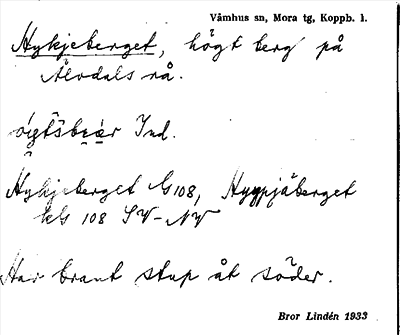 Våmhus sn, Mora tg, Koppb. l.
Hykjeberget, högt berg på
Älvdals rå.
Ind.
Hykjeberget G 108, Hyggjäberget
108 SV-NV
Har brant stup åt söder.
Bror Lindén 1933